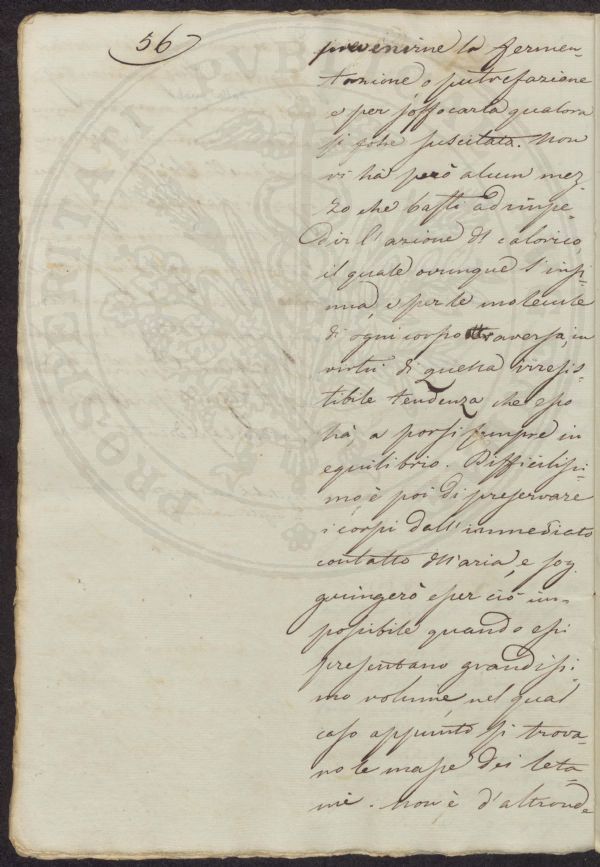 56
prevenirne la fermen-
tazione o putrefazione
e per soffocarla qualora
si fosse suscitata. Non
vi ha però alcun mez
zo che basti ad impe-
dir l'azione del calorico,
il quale ovunque s'insi-
nua, e per le molecule
di ogni corpo attraversa, in
virtù di quella irresis-
tibile tendenza che esso
ha, a porsi sempre in
equilibrio. Difficilissi-
mo, è poi di preservare
i corpi dall'immediato
contatto dell'aria, e sog
giungerò esser ciò im-
possibile quando essi
presentano grandissi-
mo volume, nel qual
caso appunto si trova-
no le masse dei leta-
mi. Non è d'altronde
PROSPERITATI PUBL